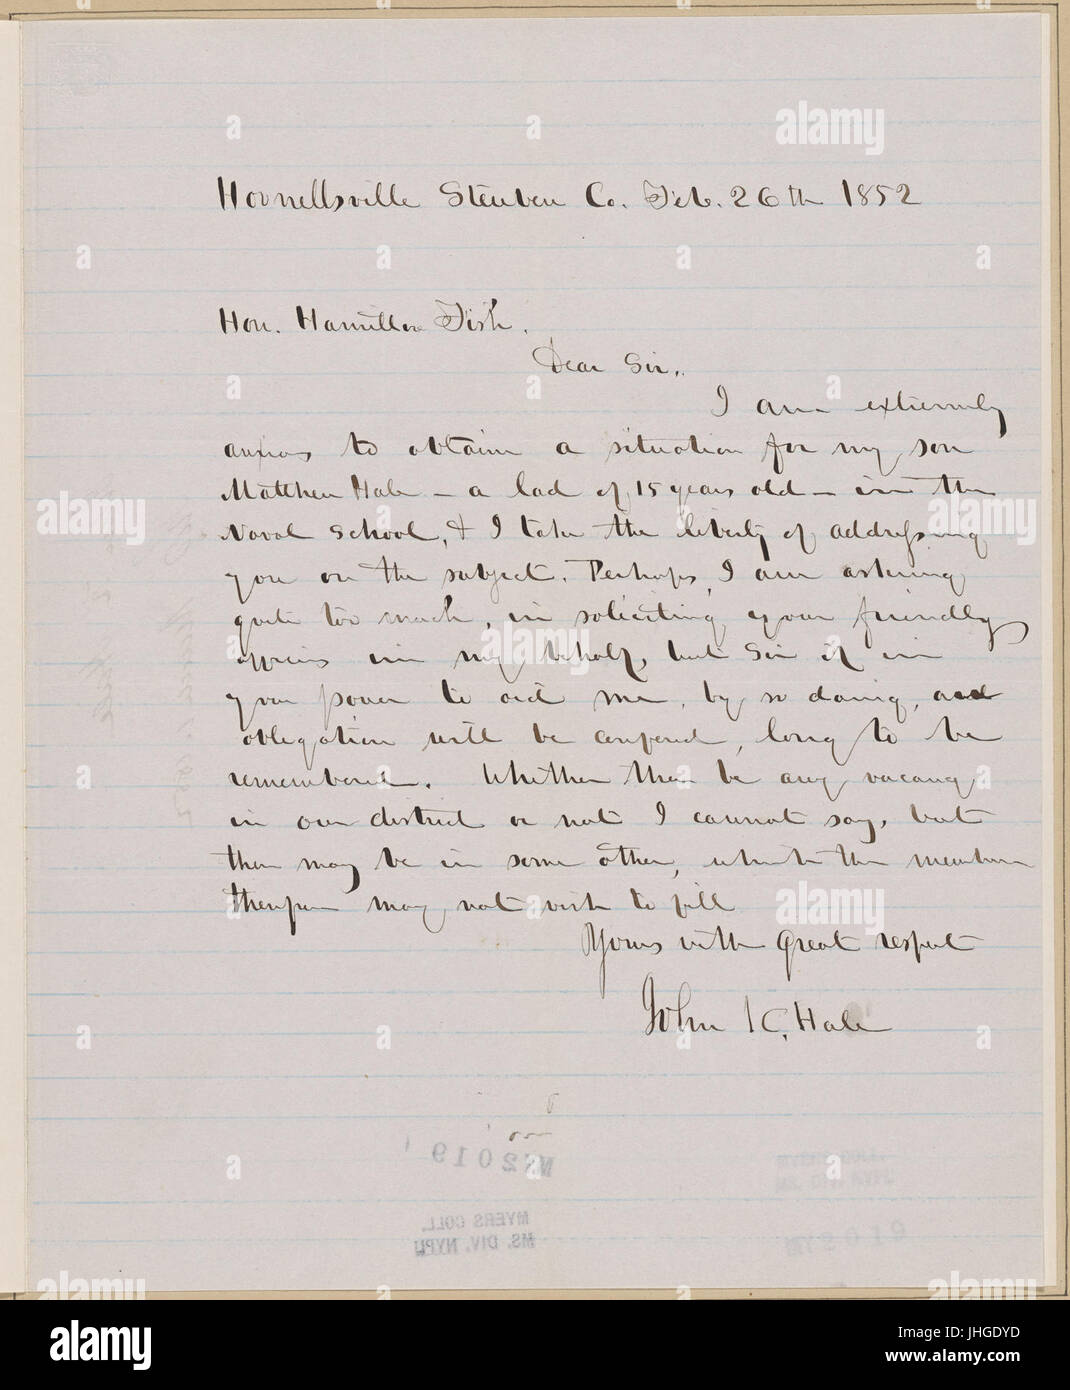 Hornellsville Steuben Co. Feb. 26th 1852
Hon. Hamilton Fish.
Dear Sir,
I am extremely
anxious to obtain a situation for my son
Matthew Hale – a lad of 15 years old – in the
Naval School, & I take the liberty of addressing
you on the subject. Perhaps, I am asking
quite too much, in soliciting your friendly
offices in my behalf, but Sir if in
your power to aid me, by so doing, and
obligation will be conferred, long to be
remembered. Whether there be any vacancy
in our district or not I cannot say, but
there may be in some other, which the member
therefrom may not wish to fill
Yours with great respect
John K. Hale
MS2019
MYERS COLL.
MS. DIV. NYPL
alamy
a
alamy
Image ID: JHGDYD
www.alamy.com